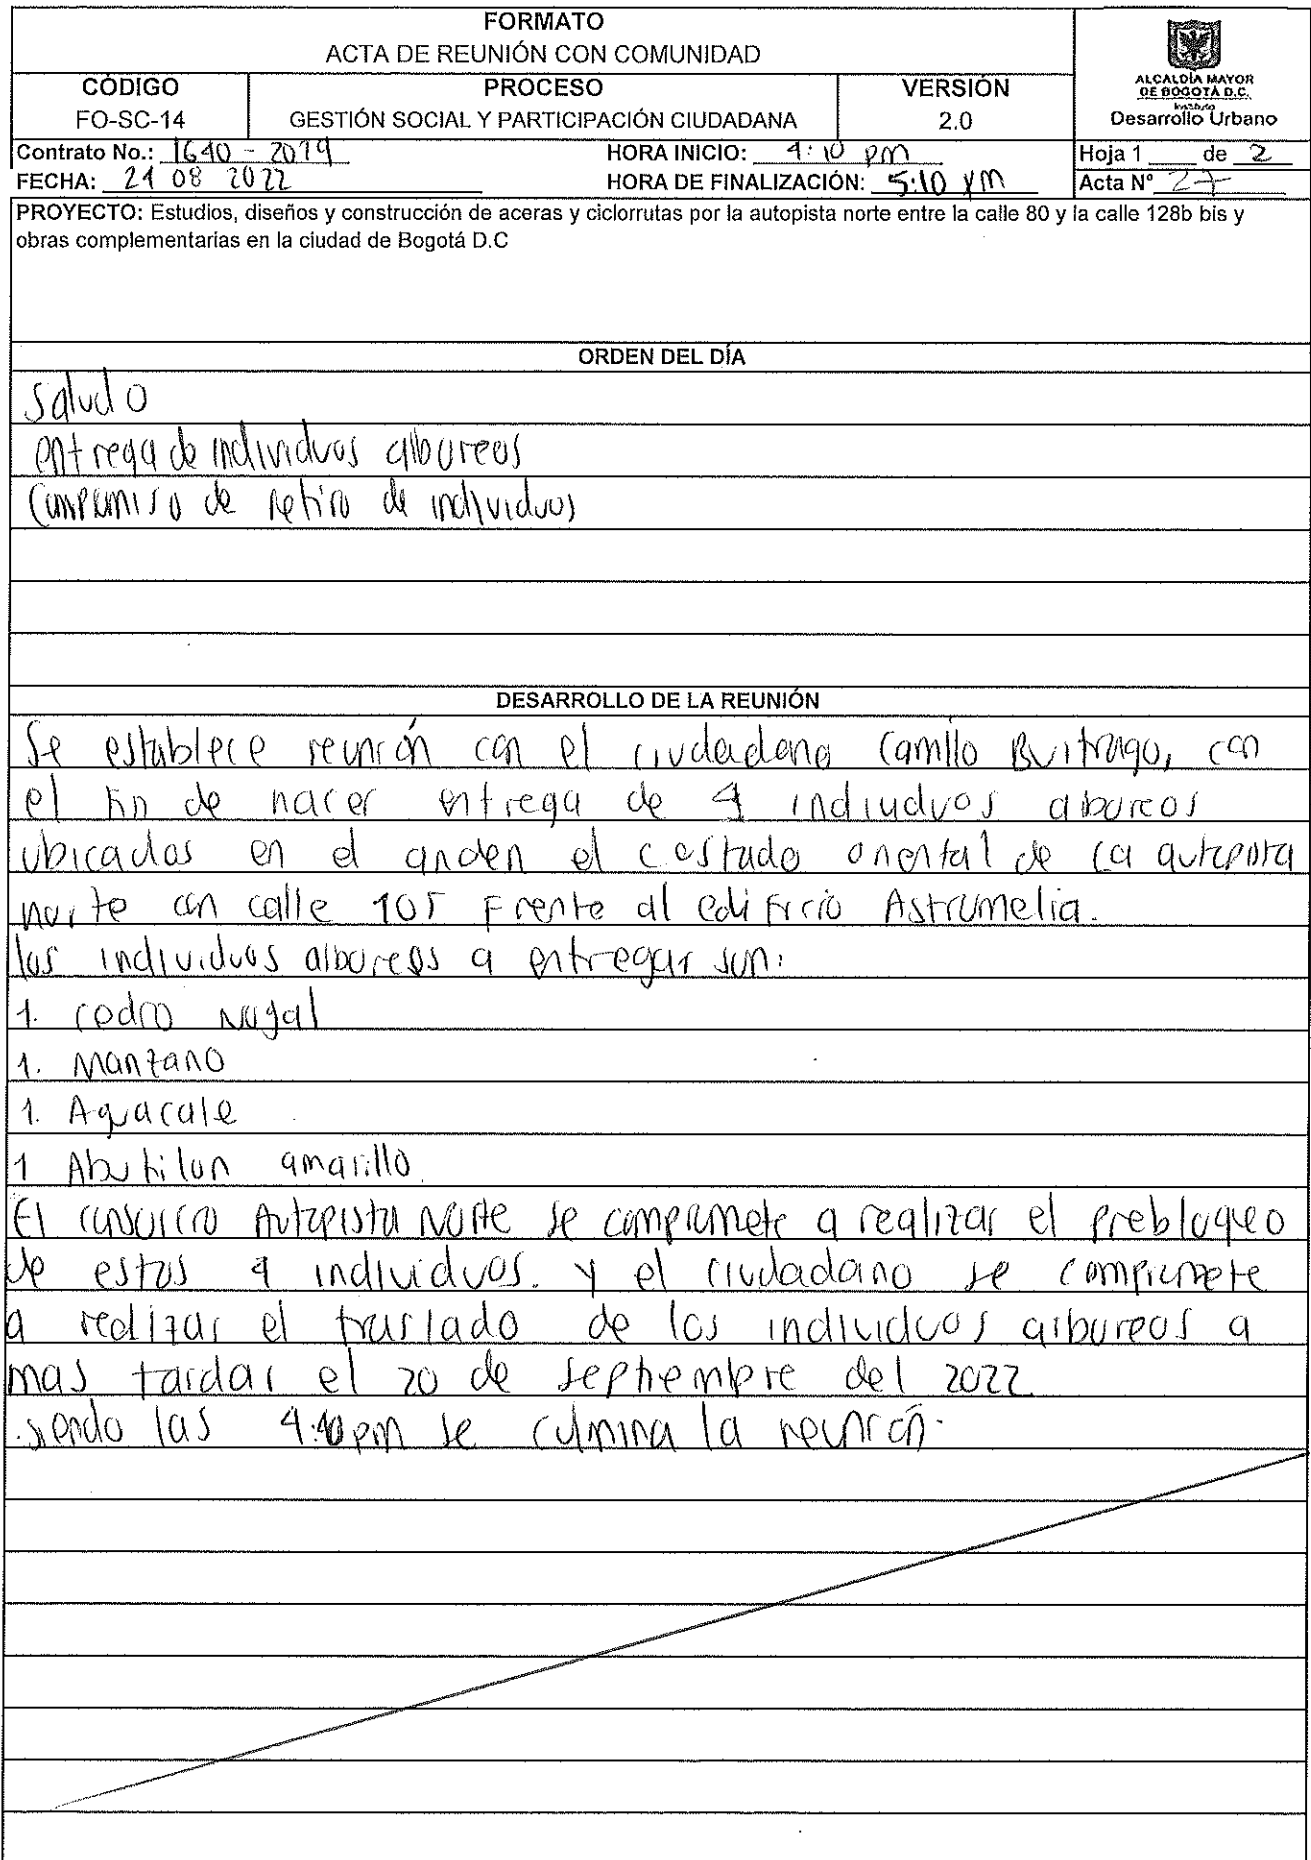 FORMATO
ACTA DE REUNIÓN CON COMUNIDAD
CÓDIGO PROCESO VERSIÓN
FO-SC-14 GESTIÓN SOCIAL Y PARTICIPACIÓN CIUDADANA 2.0
ALCALDÍA MAYOR
DE BOGOTÁ D.C.
Instituto
Desarrollo Urbano
Contrato No.: 1640 - 2019 HORA INICIO: 4:10 pm Hoja 1 de 2
FECHA: 24 08 2022 HORA DE FINALIZACIÓN: 5:10 pm Acta N° 27
PROYECTO: Estudios, diseños y construcción de aceras y ciclorrutas por la autopista norte entre la calle 80 y la calle 128b bis y
obras complementarias en la ciudad de Bogotá D.C
ORDEN DEL DÍA
Saludo
entrega de individuos alboreos
Compromiso de retiro de individuos
DESARROLLO DE LA REUNIÓN
Se establece reunión con el ciudadano Camilo Buitrago, con
el fin de hacer entrega de 4 individuos alboreos
ubicados en el anden el costado oriental de la autopista
norte con calle 105 Frente al edificio Astrumelia.
los individuos alboreos a entregar son:
1. cedro Nogal
1. Manzano
1. Aguacate
1 Abutilon amarillo.
El consorcio Autopista Norte se compromete a realizar el prebloqueo
de estos 4 individuos. y el ciudadano se compromete
a realizar el traslado de los individuos arboreos a
mas tardar el 20 de septiembre del 2022
siendo las pm se culmina la reunión.